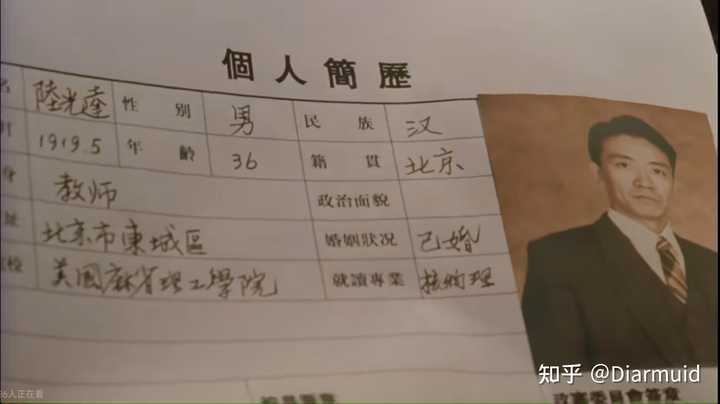 個人簡歷
陸光達 性別 男 民族 汉
1919.5 年齡 36 籍貫 北京
教师 政治面貌
北京市東城區 婚姻狀况 己婚
美國麻省理工學院 就讀專業 核物理
知乎 @Diarmuid
政審委員會簽章
6人正在看